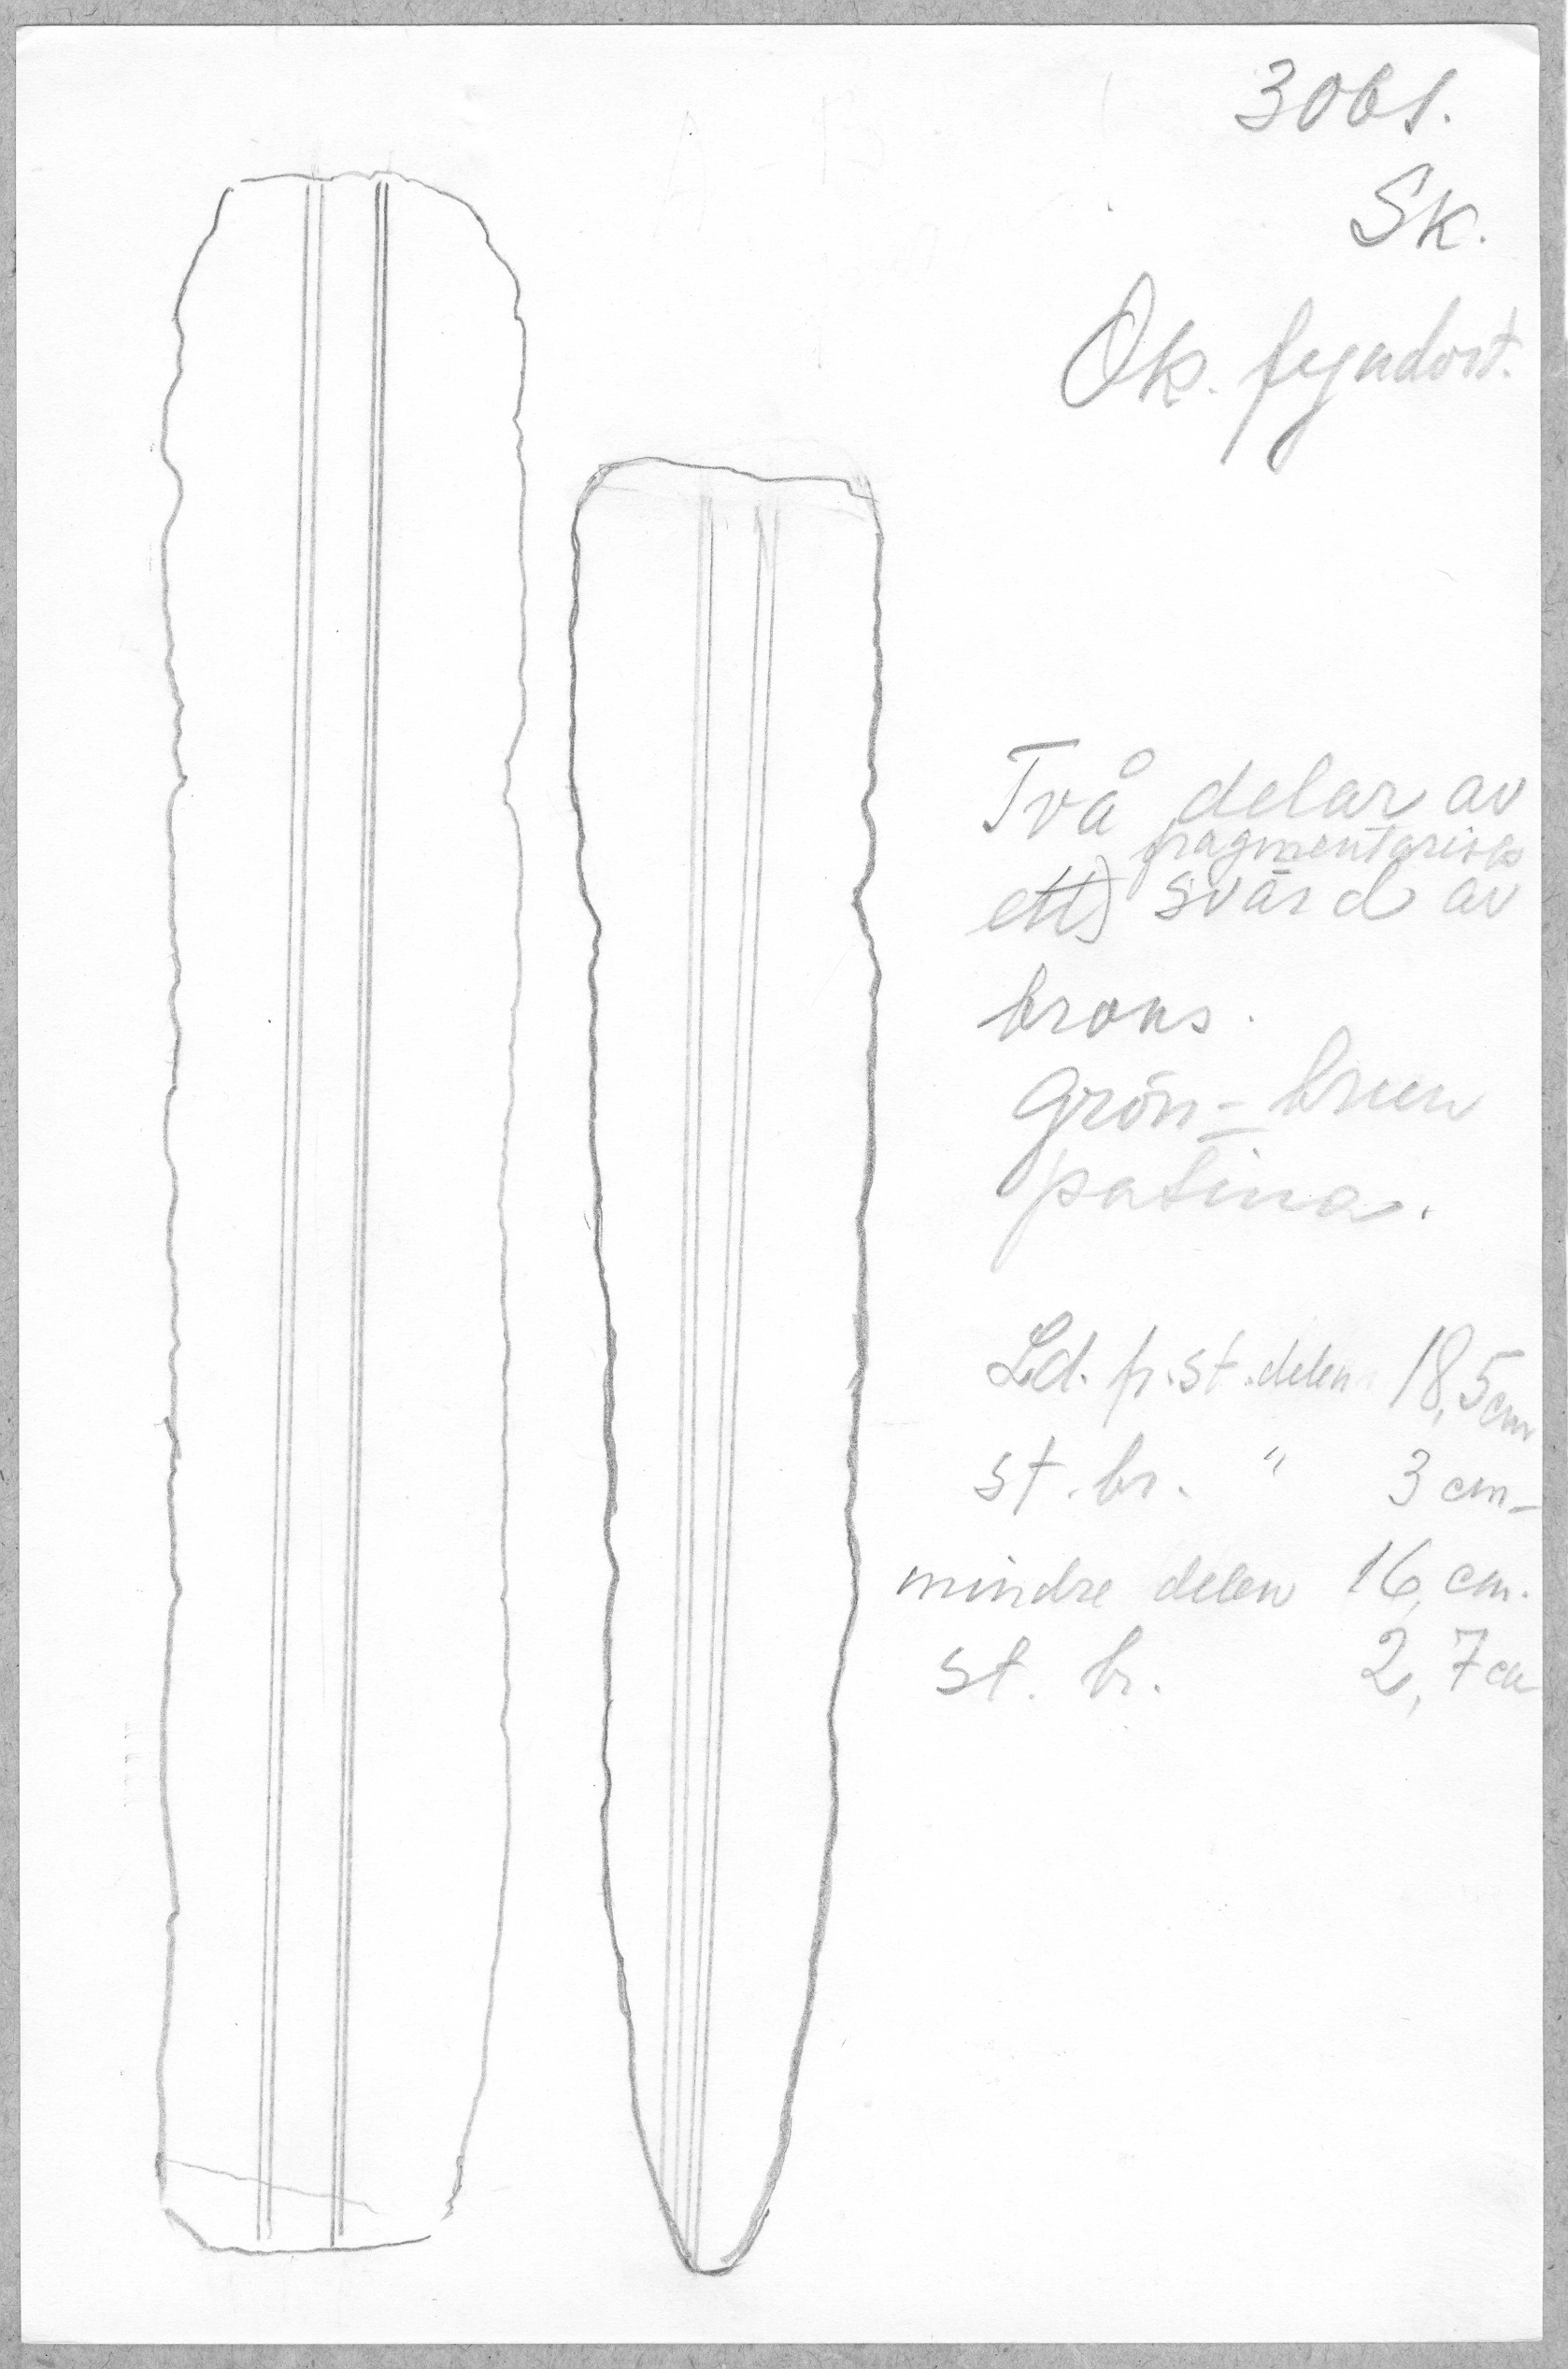 3061.
Sk.
Ok. fyndort.
Två delar av
fragmentarisk
ett) svärd av
brons.
Grön-brun
patina.
Ld. fr. st. delen 18,5 cm
st. br. " 3 cm
mindre delen 16 cm.
st. br. 2,7 cm